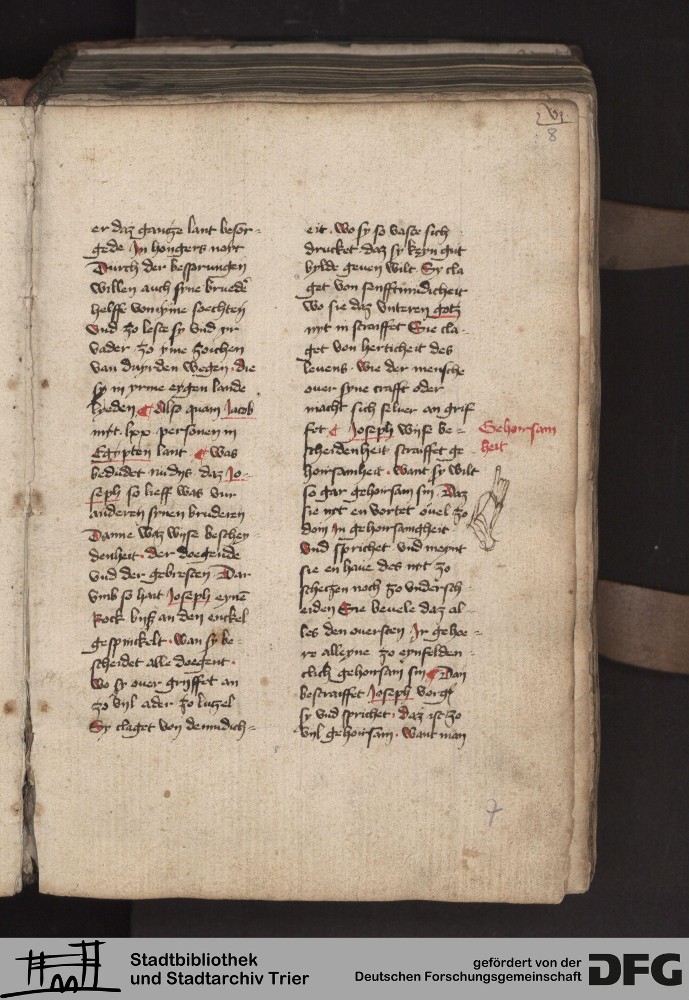 vj
8
er daz gantze lant besor-
gede In hongers noyt
Durch der besparungen
willen auch syne bruede
helffe von yme soechten
Vnd zo lest sy vnd yr
vader zo yme zoichen
van duyrden wegen die
sy in yrme eygen lande
lyeden Also quam Jacob
mit lxx personen in
Egypten lant Was
bedudet nu dys daz Jo-
seph so lieff was vur
anderen synen bruderen
Danne waz wyse beschey-
denheit der doegende
vnd der gebresten Dar
vmb so hait Joseph eyne
Rock byß an den enckel
gespinckelt wan sy be-
scheidet alle doegent
Wo sy ouer gryffet an
zo vyl ader zo lutzel
Sy claget von demudich-
eit wo sy so vaste sich
drucket daz sy keyn gut
bylde geuen wilt Sy cla
get von senfftmudicheit
wo sie daz vnteren gotz
nyt in straiffet Sie cla-
get von herticheit des
leuens wie der mensche
ouer syne crafft oder
macht sich seluer an grif
fet Joseph wyse be-
scheidenheit straiffet ge-
hoirsamheit want sy wilt
so gar gehorsam sin Daz
sie nyt en vortet ouel zo
doin In gehorsamgheit
Vnd sprichet vnd meynt
sie en haue des nyt zo
schetzen noch zo vndersch-
eiden Ene beuele daz al-
les den ouersten Ir gehoe-
re alleyne zo eynfelden-
clich gehorsam sin Dan
bestraiffet Joseph vorgt
sy vnd sprichet daz ist zo
vyl gehoirsam want man
Gehorsam
heit
7
Stadtbibliothek
und Stadtarchiv Trier
gefördert von der
Deutschen Forschungsgemeinschaft
DFG